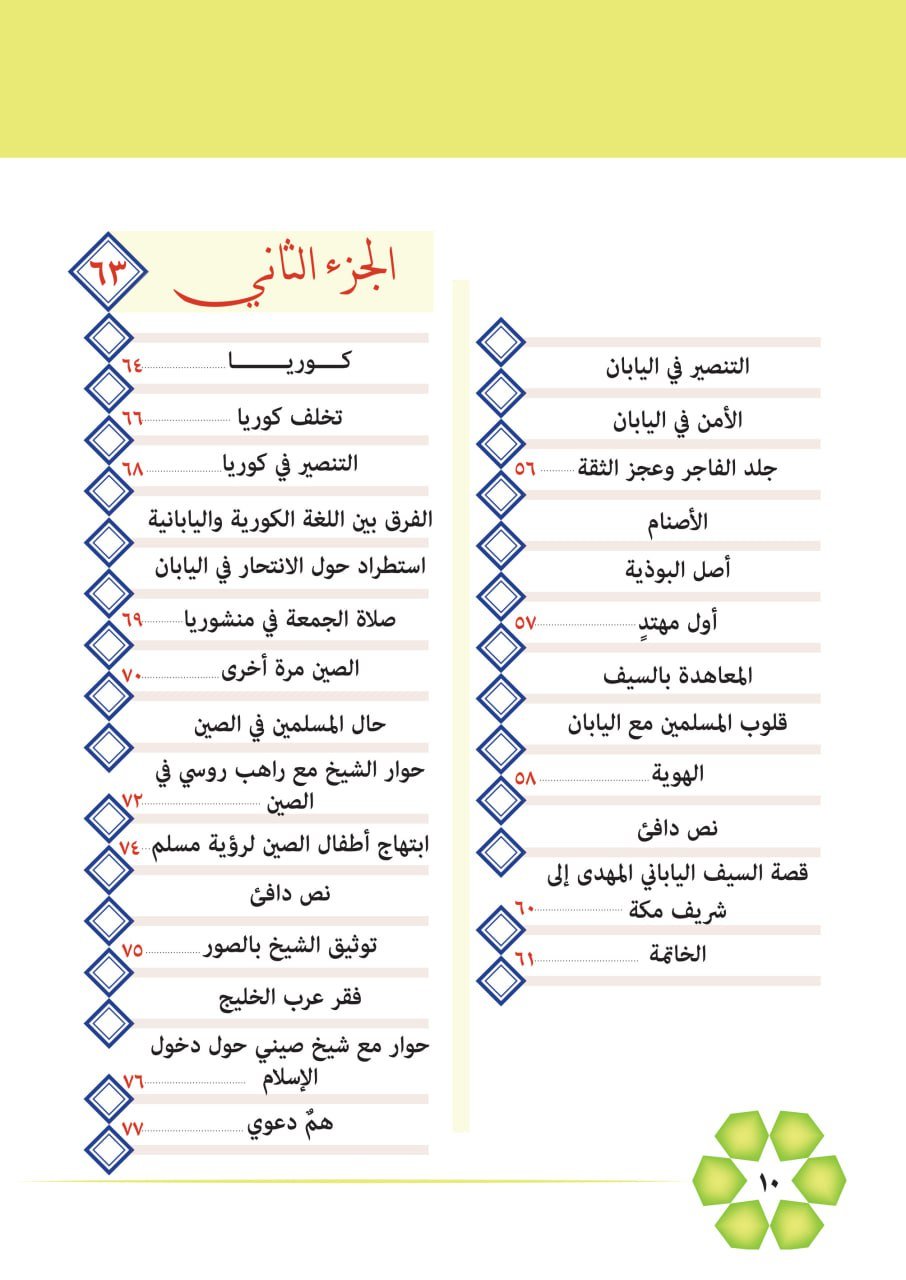 التنصير في اليابان
الأمن في اليابان
جلد الفاجر وعجز الثقة ............ ٥٦
الأصنام
أصل البوذية
أول مهتدٍ ............ ٥٧
المعاهدة بالسيف
قلوب المسلمين مع اليابان
الهوية ............ ٥٨
نص دافئ
قصة السيف الياباني المهدى إلى
شريف مكة ............ ٦٠
الخاتمة ............ ٦١
الجزء الثاني ٦٣
كـــوريـــــا ............ ٦٤
تخلف كوريا ............ ٦٦
التنصير في كوريا ............ ٦٨
الفرق بين اللغة الكورية واليابانية
استطراد حول الانتحار في اليابان
صلاة الجمعة في منشوريا ............ ٦٩
الصين مرة أخرى ............ ٧٠
حال المسلمين في الصين
حوار الشيخ مع راهب روسي في
الصين ............ ٧٢
ابتهاج أطفال الصين لرؤية مسلم ... ٧٤
نص دافئ
توثيق الشيخ بالصور ............ ٧٥
فقر عرب الخليج
حوار مع شيخ صيني حول دخول
الإسلام ............ ٧٦
همٌ دعوي ............ ٧٧
١٠